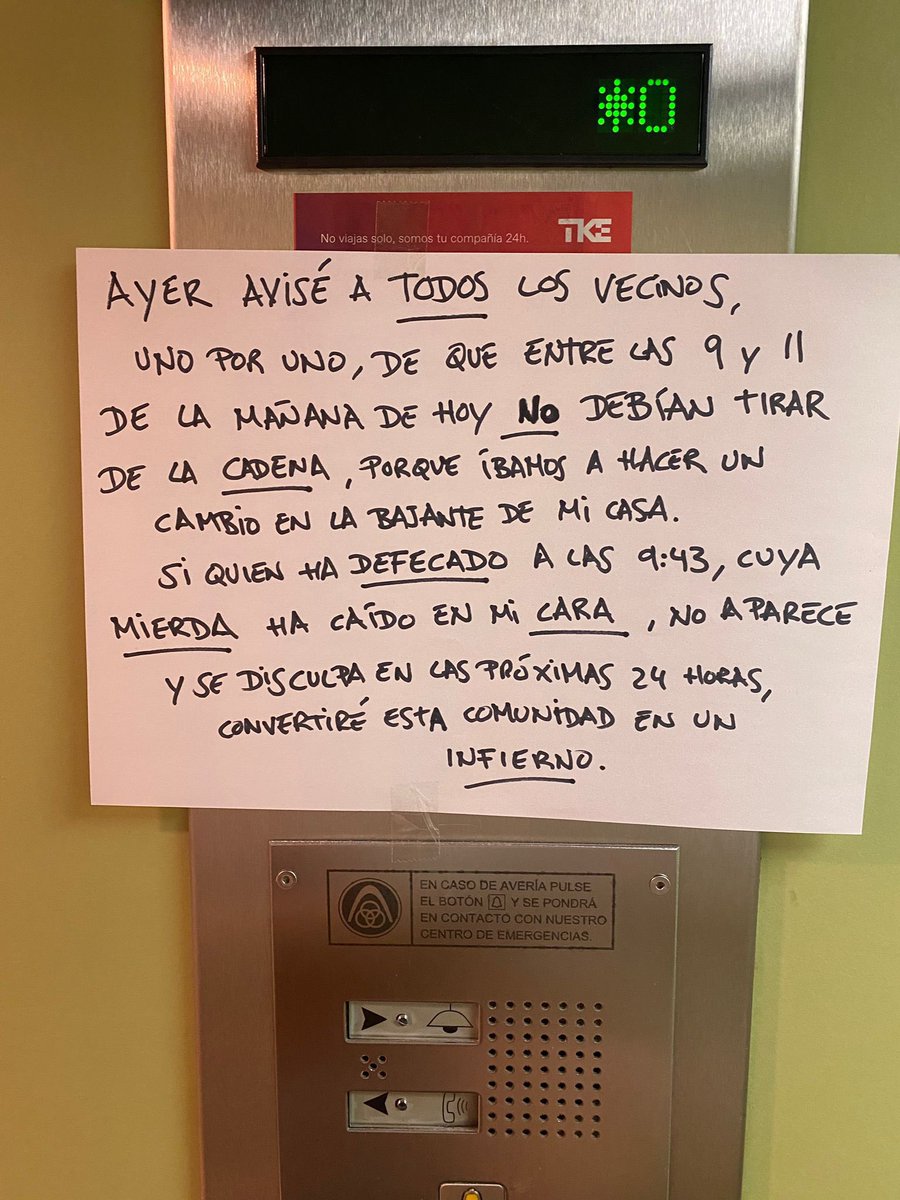 *0
No viajas solo, somos tu compañía 24h.
TKE
AYER AVISÉ A TODOS LOS VECINOS,
UNO POR UNO, DE QUE ENTRE LAS 9 y 11
DE LA MAÑANA DE HOY NO DEBÍAN TIRAR
DE LA CADENA, PORQUE ÍBAMOS A HACER UN
CAMBIO EN LA BAJANTE DE MI CASA.
SI QUIEN HA DEFECADO A LAS 9:43, CUYA
MIERDA HA CAÍDO EN MI CARA, NO APARECE
Y SE DISCULPA EN LAS PRÓXIMAS 24 HORAS,
CONVERTIRÉ ESTA COMUNIDAD EN UN
INFIERNO.
EN CASO DE AVERÍA PULSE
EL BOTÓN Y SE PONDRÁ
EN CONTACTO CON NUESTRO
CENTRO DE EMERGENCIAS.